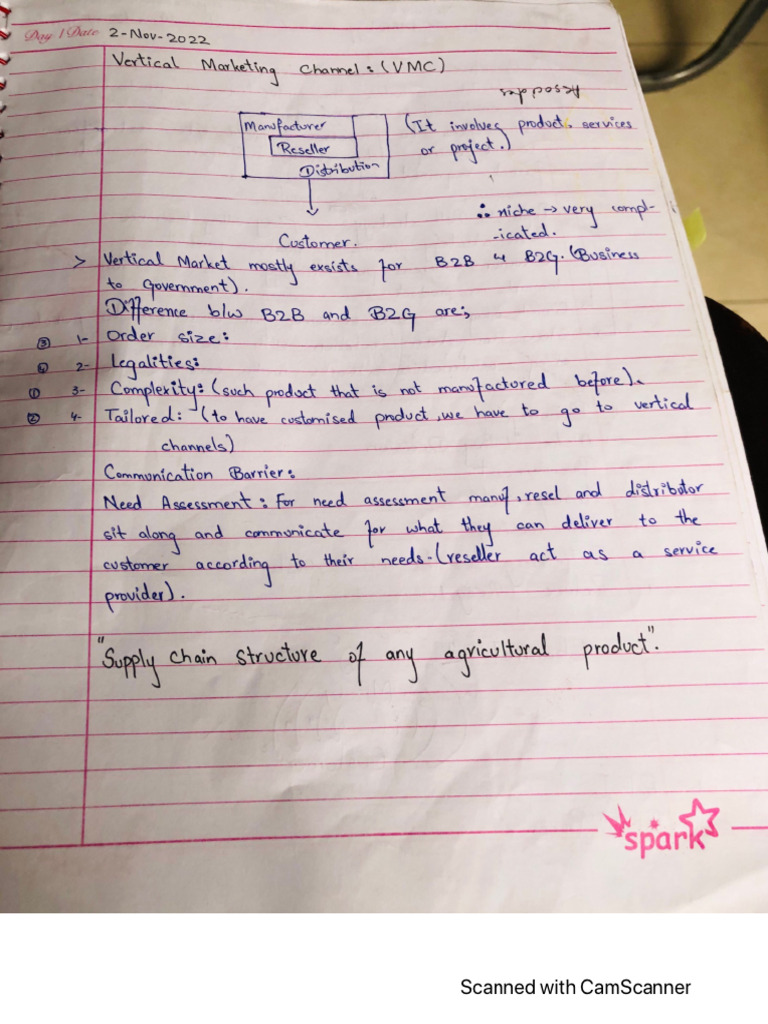 Day / Date 2-Nov-2022
Vertical Marketing Channel: (VMC)
Manufacturer
Reseller
Distribution
(It involves product, services
or project.)
∴ niche → very compl-
-icated.
Customer.
> Vertical Market mostly exsists for B2B & B2G. (Business
to Government).
Difference b/w B2B and B2G are;
③ 1- Order size:
④ 2- Legalities:
① 3- Complexity: (such product that is not manufactured before).
② 4- Tailored: (to have customised product, we have to go to vertical
channels)
Communication Barrier:
Need Assessment: For need assessment manuf, resel and distributor
sit along and communicate for what they can deliver to the
customer according to their needs. (reseller act as a service
provider).
"Supply chain structure of any agricultural product".
spark
Scanned with CamScanner